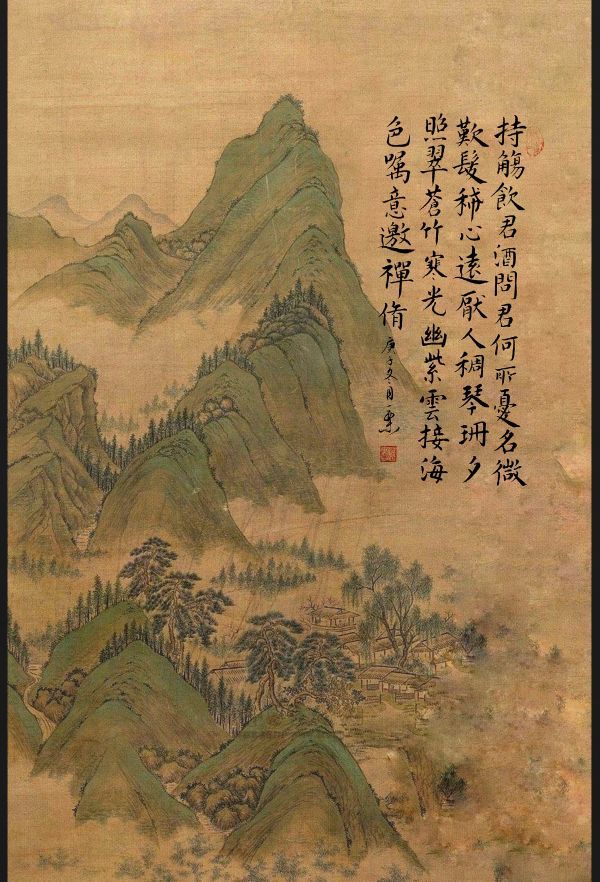 持觴飲君酒問君何所憂名微
歎髮稀心遠厭人稠琴珊夕
照翠蒼竹寒光幽紫雲接海
色嘱意邀禪脩
庚子冬月